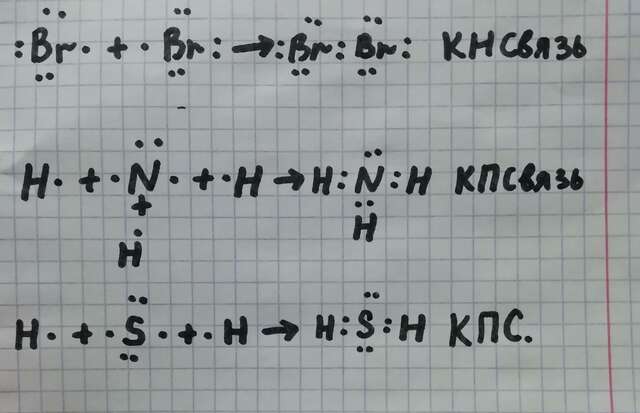 :B̤̈r· + ·B̤̈r: → :B̤̈r:B̤̈r: КНСвязь
H· + ·N̈· + ·H → H:N̈:H КПСвязь
+ ··
Ḣ H
H· + ·S̤̈· + ·H → H:S̤̈:H КПС.